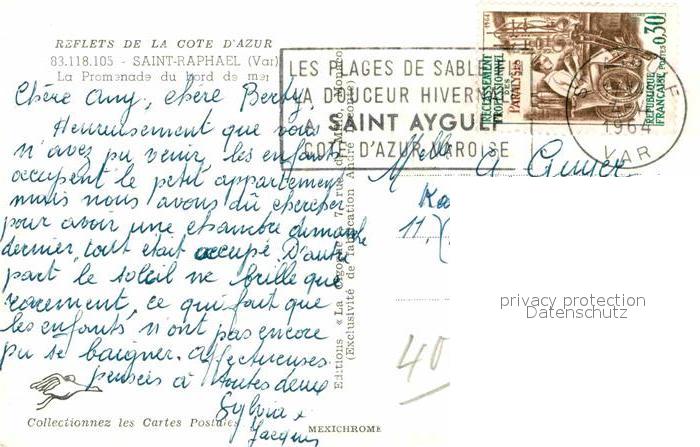 REFLETS DE LA COTE D'AZUR
83.118.105 - SAINT-RAPHAEL (Var)
La Promenade du bord de mer
Chère Amy, chère Berty,
Heureusement que vous
n'avez pu venir, les enfants
occupent le petit appartement
mais nous avons dû chercher
pour avoir une chambre dimanche
dernier, tout était occupé. D'autre
part le soleil ne brille que
rarement, ce qui fait que
les enfants n'ont pas encore
pu se baigner. Affectueuses
pensées à toutes deux
Sylvia &
Jacques
Collectionnez les Cartes Postales
MEXICHROME
Editions « La Cigogne »
(Exclusivité de fabrication André
LES PLAGES DE SABLE
LA DOUCEUR HIVERNA
A SAINT AYGULF
COTE D'AZUR VAROISE
1964
VAR
1964
RECLASSEMENT
PROFESSIONNEL
DES
PARALYSÉS
REPUBLIQUE
FRANÇAISE
POSTES
0,30
Melle A
11,
40
privacy protection
Datenschutz